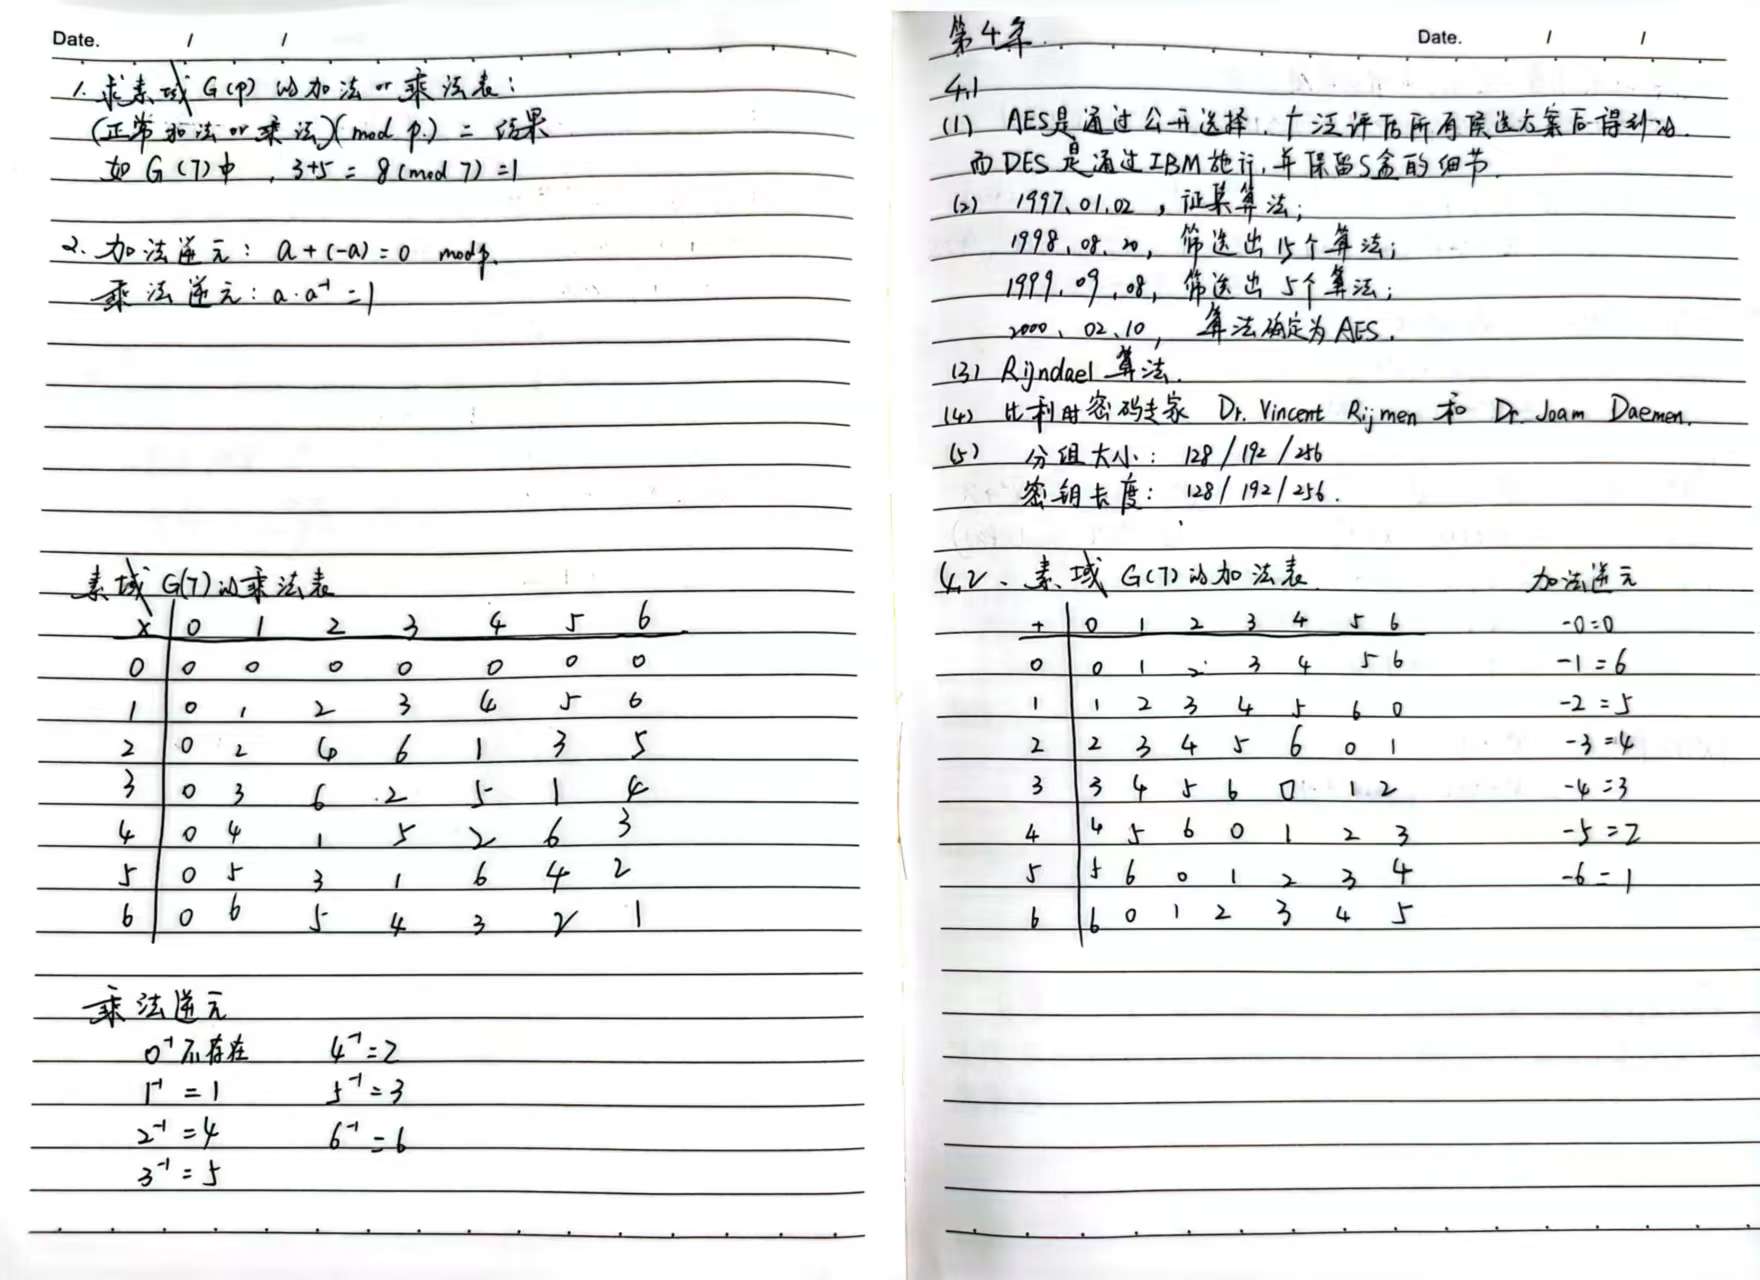 Date. / /
1. 求素域 G(p) 的加法or乘法表:
(正常加法or乘法)(mod p.) = 结果
如 G(7)中, 3+5 = 8(mod 7) =1
2. 加法逆元: a+(-a)=0 modp.
乘法逆元: a·a⁻¹=1
素域 G(7)的乘法表
× 0 1 2 3 4 5 6
0 0 0 0 0 0 0 0
1 0 1 2 3 4 5 6
2 0 2 4 6 1 3 5
3 0 3 6 2 5 1 4
4 0 4 1 5 2 6 3
5 0 5 3 1 6 4 2
6 0 6 5 4 3 2 1
乘法逆元
0⁻¹不存在 4⁻¹=2
1⁻¹ = 1 5⁻¹=3
2⁻¹=4 6⁻¹=6
3⁻¹=5
第4章. Date. / /
4.1
(1) AES是通过公开选择.广泛评估所有候选方案后得到的.
而DES是通过IBM施行,并保留S盒的细节.
(2) 1997.01.02, 征集算法;
1998.08.20, 筛选出15个算法;
1999.09.08, 筛选出5个算法;
2000.02.10, 算法确定为AES.
(3) Rijndael 算法.
(4) 比利时密码专家 Dr. Vincent Rijmen 和 Dr. Joam Daemen.
(5) 分组大小: 128/192/256
密钥长度: 128/192/256.
4.2、素域 G(7)的加法表 加法逆元
+ 0 1 2 3 4 5 6 -0=0
0 0 1 2 3 4 5 6 -1=6
1 1 2 3 4 5 6 0 -2=5
2 2 3 4 5 6 0 1 -3=4
3 3 4 5 6 0 1 2 -4=3
4 4 5 6 0 1 2 3 -5=2
5 5 6 0 1 2 3 4 -6=1
6 6 0 1 2 3 4 5